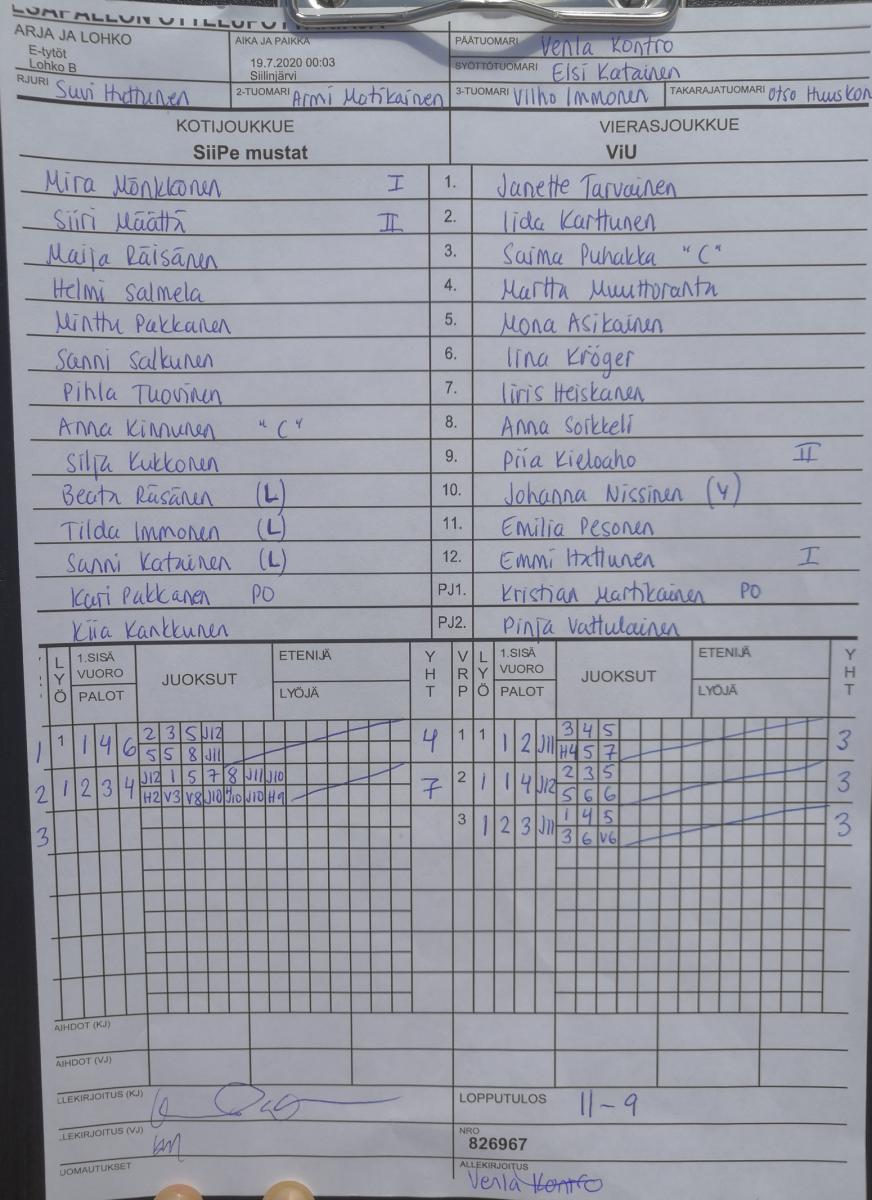 ARJA JA LOHKO
E-tytöt
Lohko B
AIKA JA PAIKKA
19.7.2020 00:03
Siilinjärvi
PÄÄTUOMARI Venla Kontro
SYÖTTÖTUOMARI Elsi Katainen
RJURI Suvi Huttunen 2-TUOMARI Armi Matikainen 3-TUOMARI Vilho Immonen TAKARAJATUOMARI Otso Huuskon
KOTIJOUKKUE VIERASJOUKKUE
SiiPe mustat ViU
Mira Mönkkönen I 1. Janette Tarvainen
Siiri Määttä II 2. Iida Karttunen
Maija Räisänen 3. Saima Puhakka "C"
Helmi Salmela 4. Martta Muuttoranta
Minttu Pakkanen 5. Mona Asikainen
Sanni Salkunen 6. Iina Kröger
Pihla Tuovinen 7. Iiris Heiskanen
Anna Kinnunen "C" 8. Anna Soikkeli
Silja Kukkonen 9. Piia Kieloaho II
Beata Räsänen (L) 10. Johanna Nissinen (V)
Tilda Immonen (L) 11. Emilia Pesonen
Sanni Katainen (L) 12. Emmi Hattunen I
Kari Pakkanen PO PJ1. Kristian Martikainen PO
Kiia Kankkunen PJ2. Pinja Vattulainen
LYÖ 1.SISÄ VUORO PALOT JUOKSUT ETENIJÄ LYÖJÄ YHT VRP LYÖ 1.SISÄ VUORO PALOT JUOKSUT ETENIJÄ LYÖJÄ YHT
1 1 1 4 6 2 3 5 J12 4 1 1 1 2 J11 3 4 5 3
5 5 8 J11 H4 5 7
2 1 2 3 4 J12 1 5 7 8 J11 J10 7 2 1 1 4 J12 2 3 5 3
H2 V3 V8 J10 J10 J10 H9 5 6 6
3 3 1 2 3 J11 1 4 5 3
3 6 V6
AIHDOT (KJ)
AIHDOT (VJ)
LLEKIRJOITUS (KJ) LOPPUTULOS 11-9
LLEKIRJOITUS (VJ) NRO
826967
UOMAUTUKSET ALLEKIRJOITUS
Venla Kontro